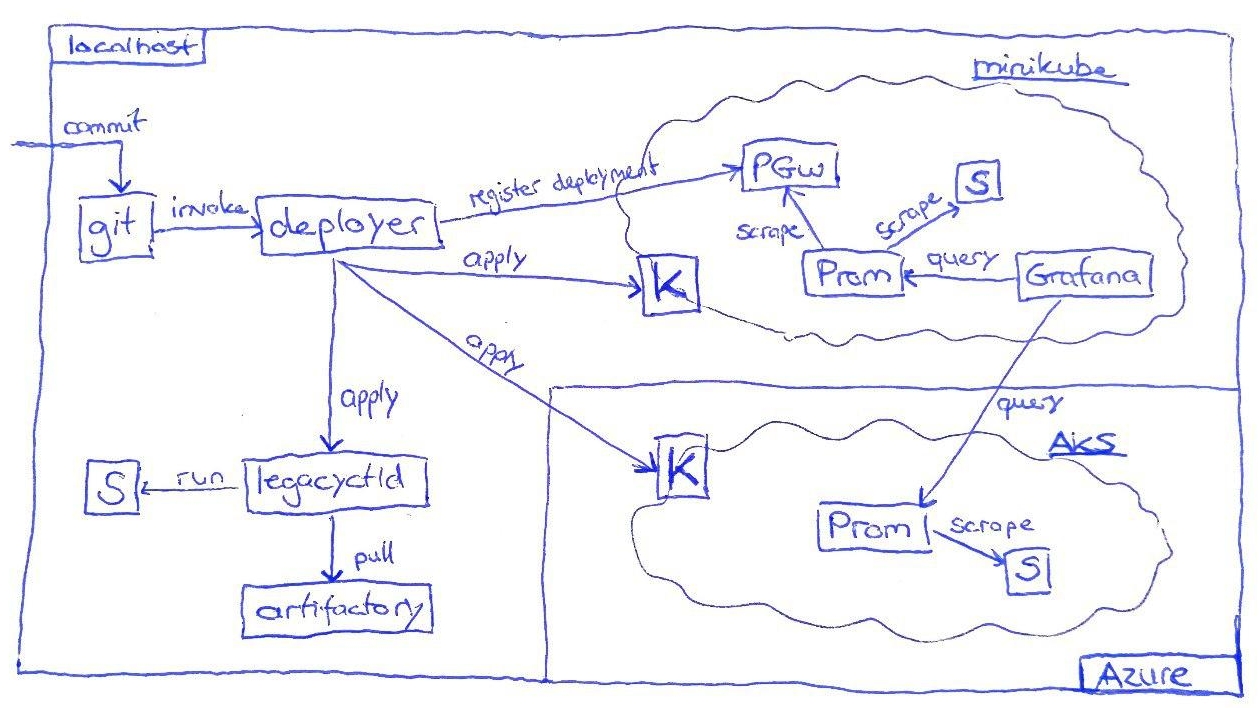 localhost
minikube
commit
git
invoke
deployer
register deployment
PGw
S
scrape
scrape
Prom
query
Grafana
apply
K
apply
apply
query
AKS
K
S
run
legacyctld
Prom
scrape
S
pull
artifactory
Azure